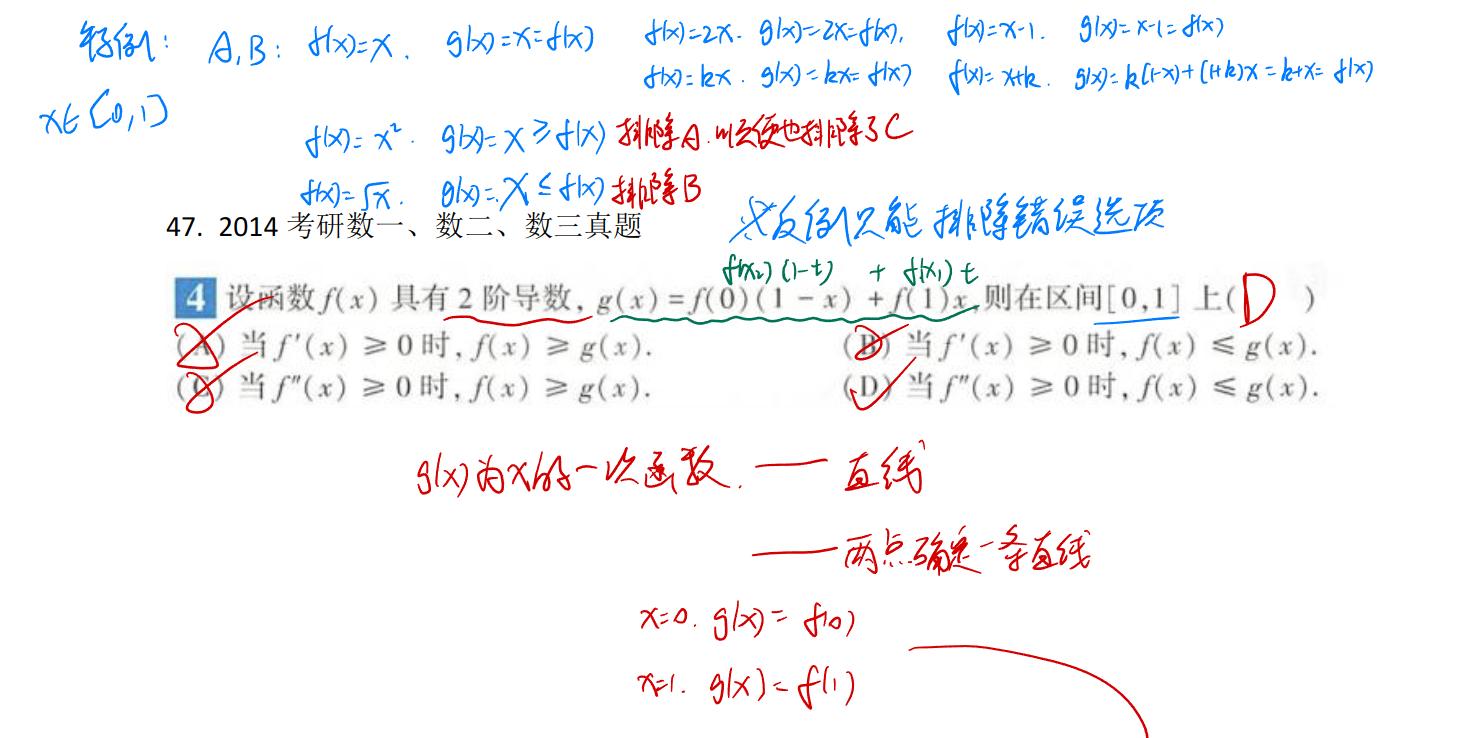 特例： A,B： f(x)=x. g(x)=x=f(x) f(x)=2x. g(x)=2x=f(x). f(x)=x-1. g(x)=x-1=f(x)
f(x)=kx. g(x)=kx=f(x) f(x)=x+k. g(x)=k(1-x)+(1+k)x=k+x=f(x)
x∈[0,1]
f(x)=x². g(x)=x≥f(x) 排除A.顺便也排除了C
f(x)=√x. g(x)=x≤f(x) 排除B
47. 2014 考研数一、数二、数三真题
反例只能排除错误选项
f(x₂)(1-t) + f(x₁)t
4 设函数 f(x) 具有 2 阶导数, g(x)=f(0)(1-x)+f(1)x,则在区间[0,1]上( D )
(A) 当 f′(x)≥0 时, f(x)≥g(x). (B) 当 f′(x)≥0 时, f(x)≤g(x).
(C) 当 f″(x)≥0 时, f(x)≥g(x). (D) 当 f″(x)≥0 时, f(x)≤g(x).
g(x)为x的一次函数. —— 直线
—— 两点确定一条直线
x=0. g(x)=f(0)
x=1. g(x)=f(1)